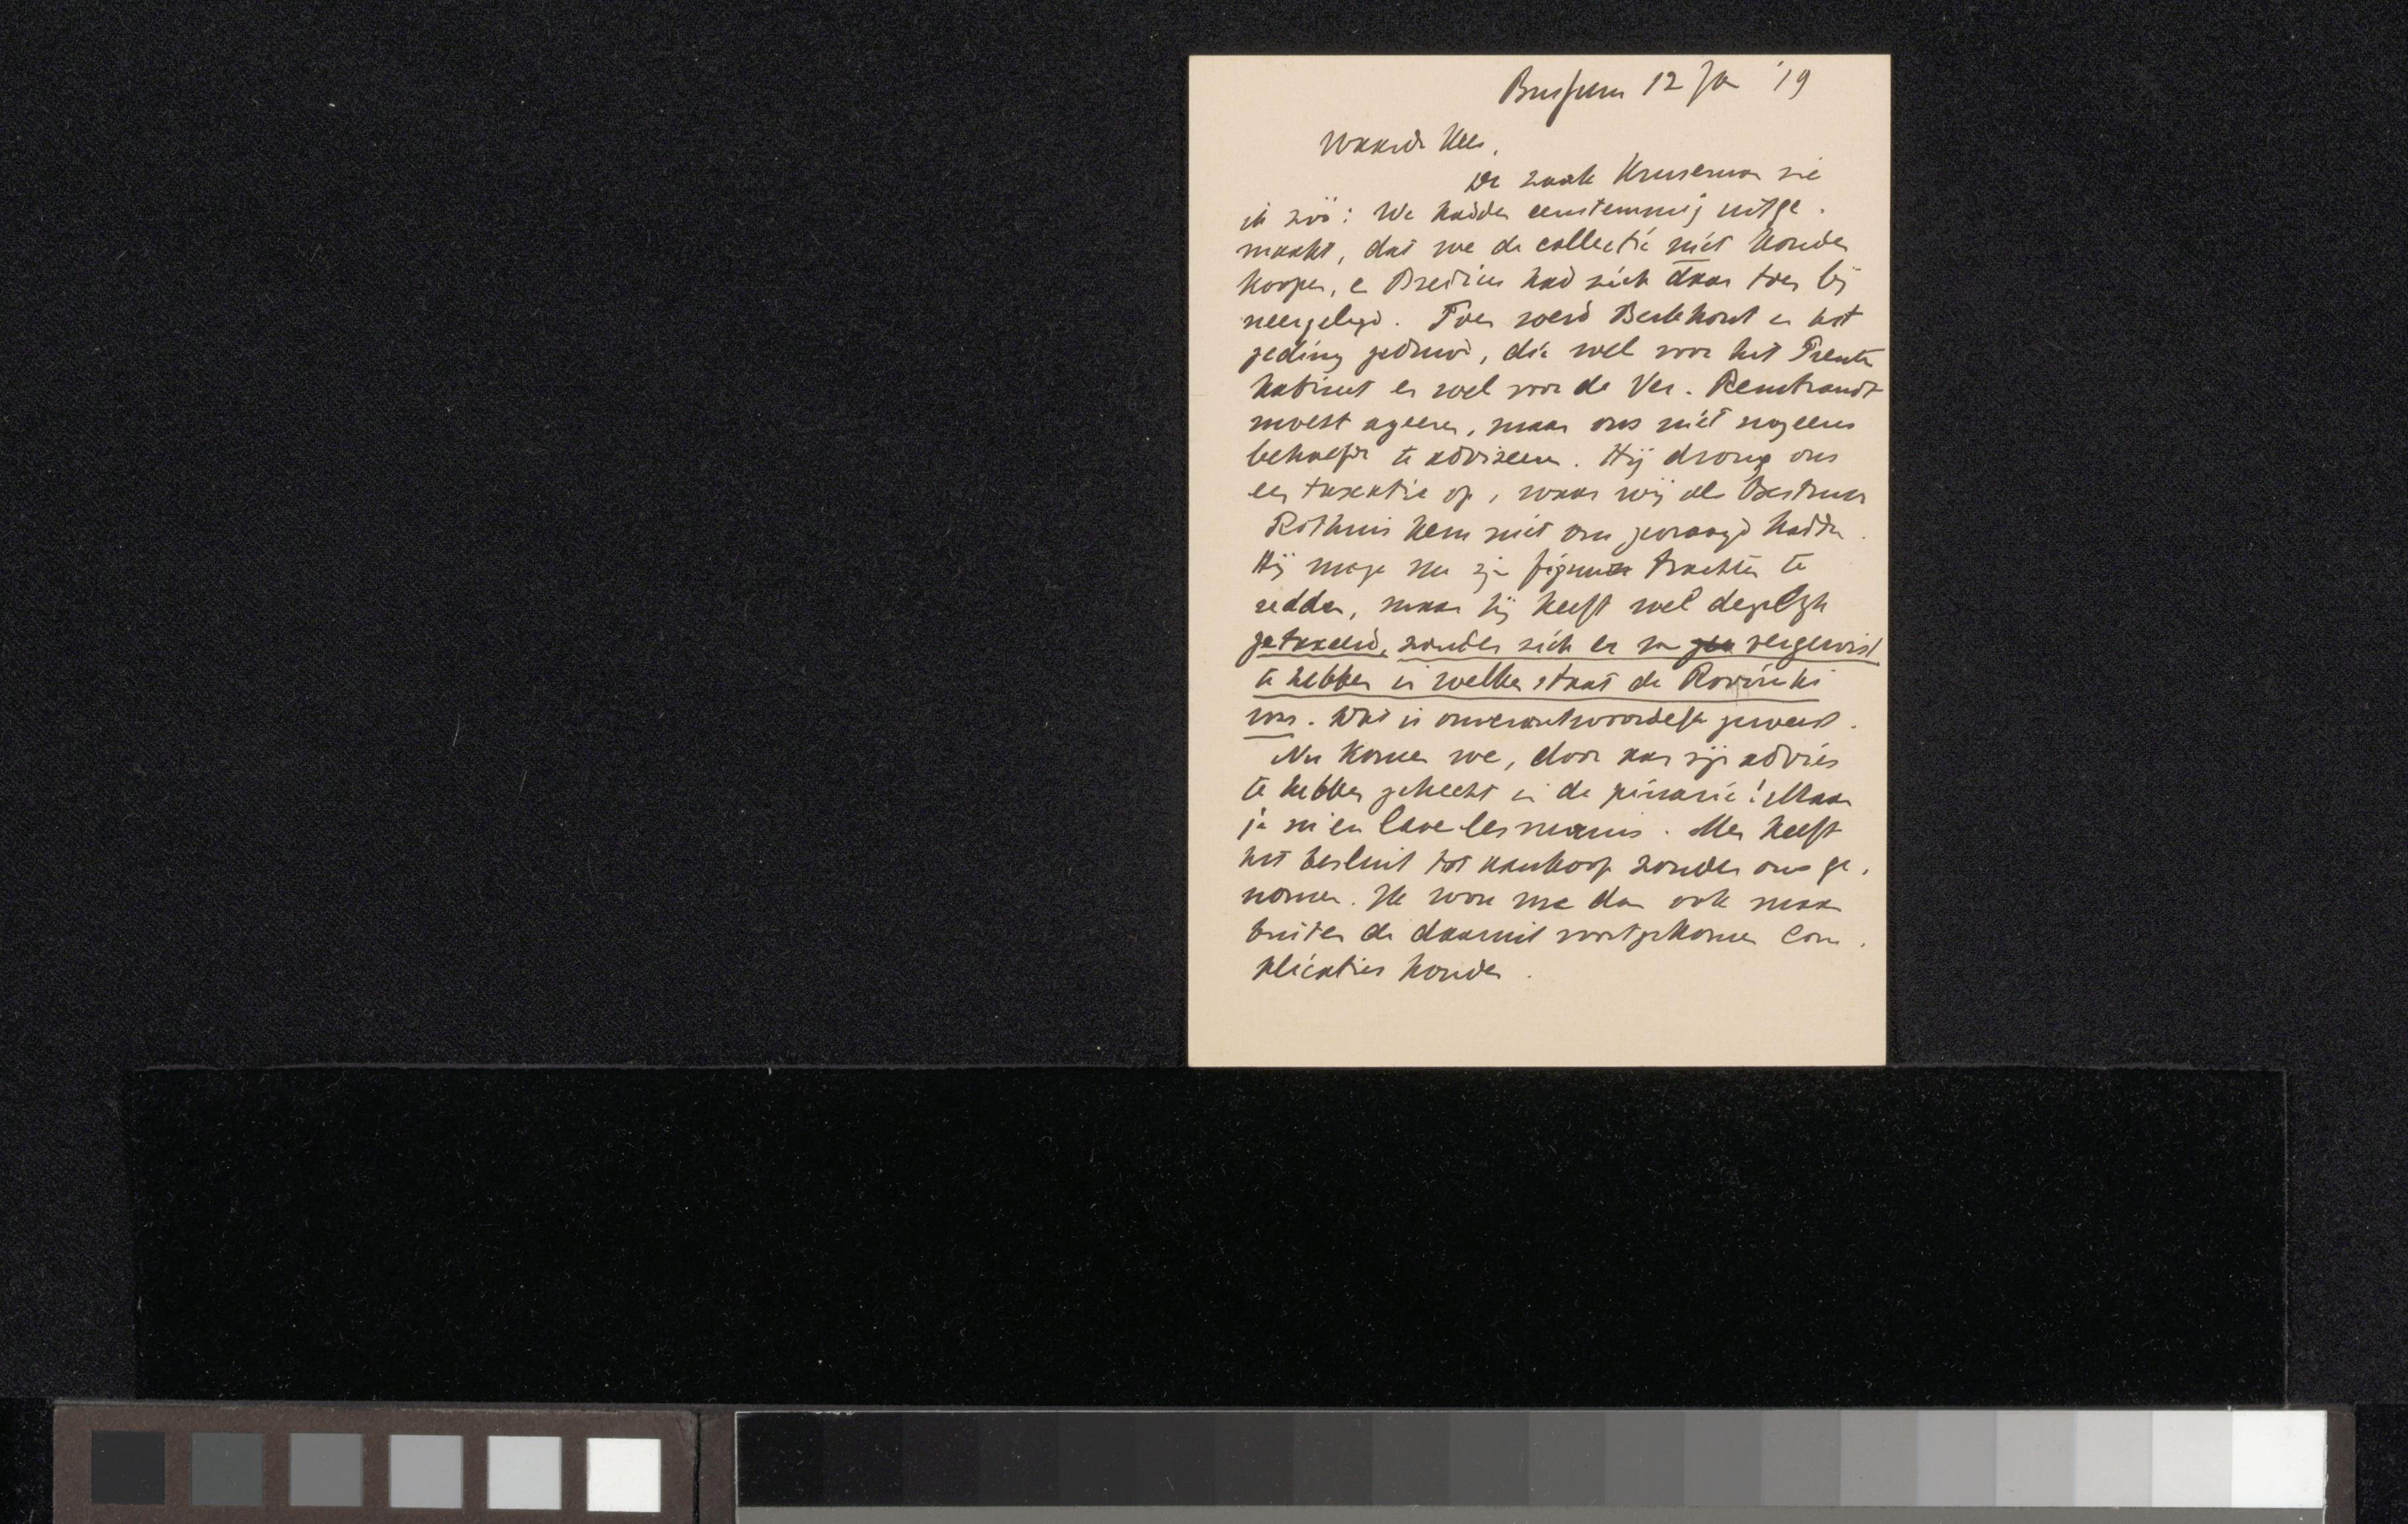 Bussum 12 Jan '19
Waarde Kees,
De zaak Kruseman zie
ik zóó: We hadden eenstemmig uitge-
maakt, dat we de collectie niet konden
koopen, en Bredius had zich daar toen bij
neergelegd. Toen werd Berkhout in het
geding geduwd, die wel voor het Prenten
kabinet en wel voor de Ver. Rembrandt
moest ageeren, maar ons niet nog eens
behoefde te adviseeren. Hij drong ons
een taxatie op, waar wij als Bestuur
Rethuis hem niet om gevraagd hadden.
Hij moge nu zijn figuur trachten te
redden, maar hij heeft wel degelijk
getaxeerd, zonder zich er van vergewist
te hebben in welken staat de Rovinski
was. Dat is onverantwoordelijk geweest.
Nu komen we, door aan zijn advies
te hebben gehecht in de penarie! Maar
je m'en lave les mains. Men heeft
het besluit tot aankoop zonder ons ge-
nomen. Ik wou me dan ook maar
buiten de daaruit voortgekomen com-
plicaties houden.